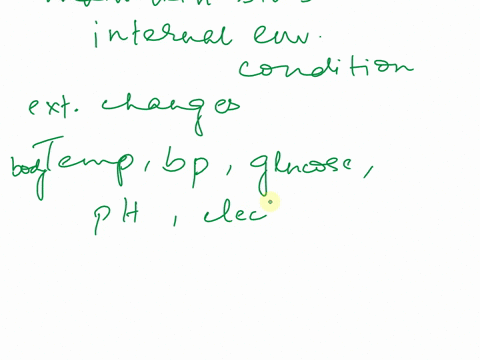 internal env.
condition
ext. changes
body Temp, bp, glucose,
pH, elec